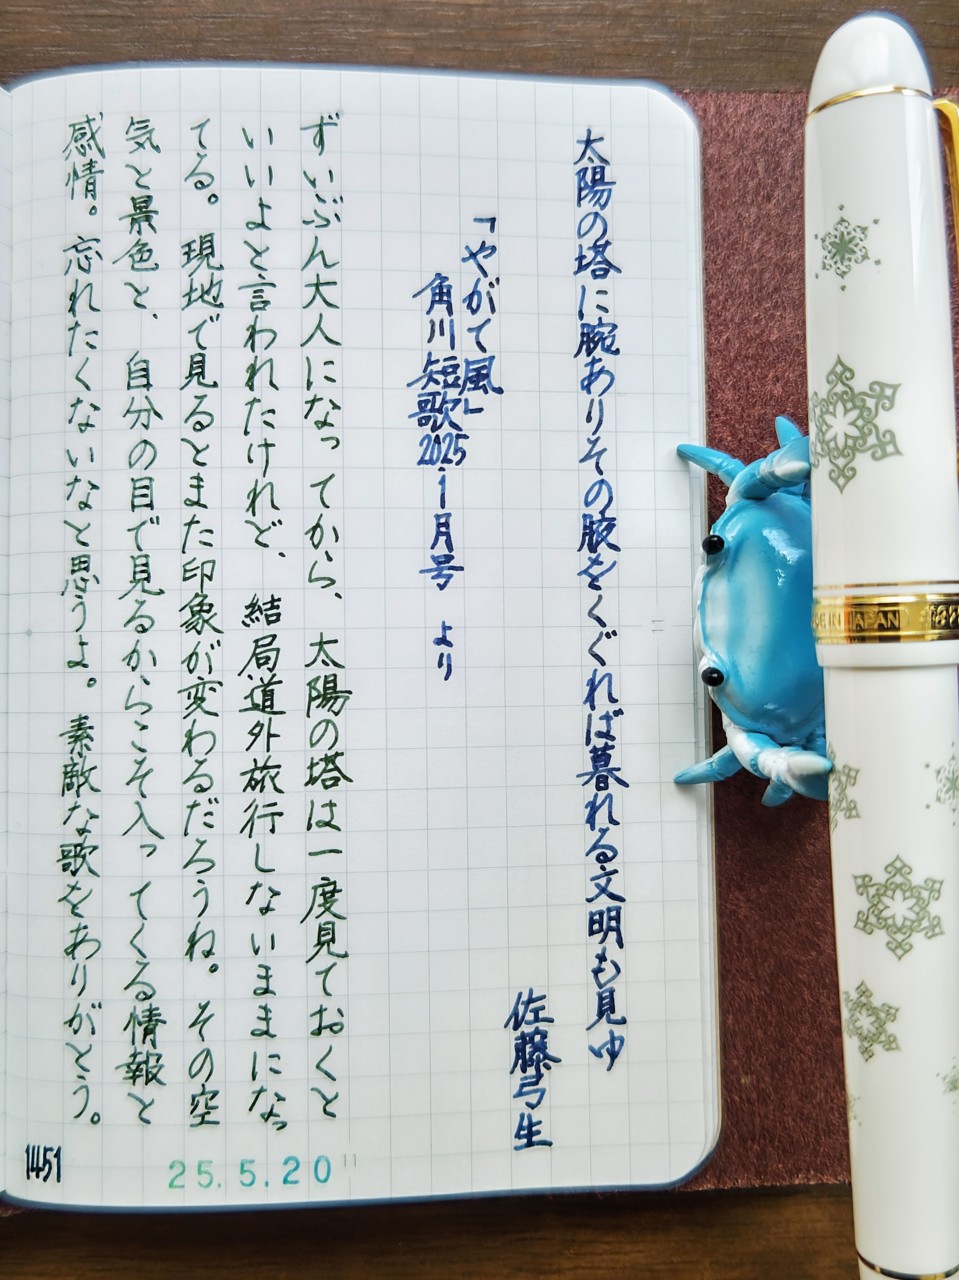 太陽の塔に腕ありその腋をくぐれば暮れる文明も見ゆ
佐藤弓生
「やがて風」
角川短歌2025.1月号 より
ずいぶん大人になってから、太陽の塔は一度見ておくと
いいよと言われたけれど、結局道外旅行しないままになっ
てる。現地で見るとまた印象が変わるだろうね。その空
気と景色と、自分の目で見るからこそ入ってくる情報と
感情。忘れたくないなと思うよ。素敵な歌をありがとう。
1451
25.5.20
JAPAN